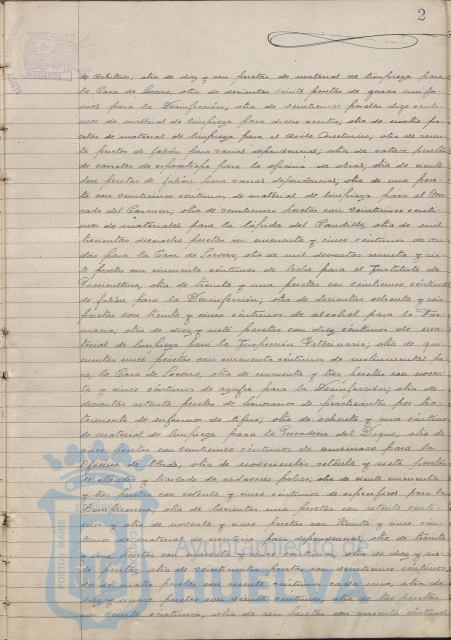 2
de Arbitrios, otra de diez y seis pesetas de material de limpieza para
la Casa de Socorro, otra de doscientas veinte pesetas de gorras unifor-
mes para la Desinfección, otra de veinticinco pesetas diez cénti-
mos de material de limpieza para dicho centro, otra de
setas de material de limpieza para el otra de
ta pesetas de jabón para varias dependencias, otra de catorce pesetas
de para la oficina de obras, otra de
pesetas de jabón para varias dependencias, otra de una pese-
ta con veinticinco céntimos de material de limpieza para el Mer-
cado del Carmen, otra de veinticinco pesetas con veinticinco cénti-
mos de materiales para la lápida del Caudillo, otra de mil
trescientas dieciocho pesetas con cincuenta y cinco céntimos de ven-
das para la Casa de Socorro, otra de mil doscientas sesenta y sie-
te pesetas con cincuenta céntimos de leche para el Instituto de
Puericultura, otra de treinta y una pesetas con veinticinco céntimos
de jabón para la Desinfección, otra de doscientas ochenta y seis
pesetas con treinta y cinco céntimos de alcohol para la Far-
macia, otra de diez y siete pesetas con diez céntimos de ma-
terial de limpieza para la Inspección Veterinaria, otra de qui-
nientas cinco pesetas con cincuenta céntimos de instrumental pa-
ra la Casa de Socorro, otra de cincuenta y tres pesetas con noven-
ta y cinco céntimos de azufre para la Desinfección, otra de
doscientas setenta pesetas de honorarios de practicantes por tra-
tamiento de enfermos de tifus, otra de ochenta y cinco céntimos
de material de limpieza para la Pescadería del Dique, otra de
once pesetas con veinticinco céntimos de amoniaco para la
Oficina de Obras, otra de novecientas setenta y siete pesetas
de ataúdes y traslado de cadáveres pobres, otra de ciento cincuenta
y tres pesetas con setenta y cinco céntimos de específicos para la
Beneficencia, otra de trescientas una pesetas con setenta cénti-
mos, y otra de noventa y cinco pesetas con treinta y cinco cén-
timos de material de escritorio para dependencias, otra de treinta
y una pesetas con otra de diez y sie-
te pesetas, otra de veinticuatro pesetas con veinticinco céntimos,
de cuatro pesetas con sesenta céntimos cada una, otra de
diez y nueve pesetas con veinte céntimos, otra de tres pesetas
con veinte céntimos, otra de seis pesetas con cuarenta céntimos,
Ayuntamiento de
PORTUS MARIS